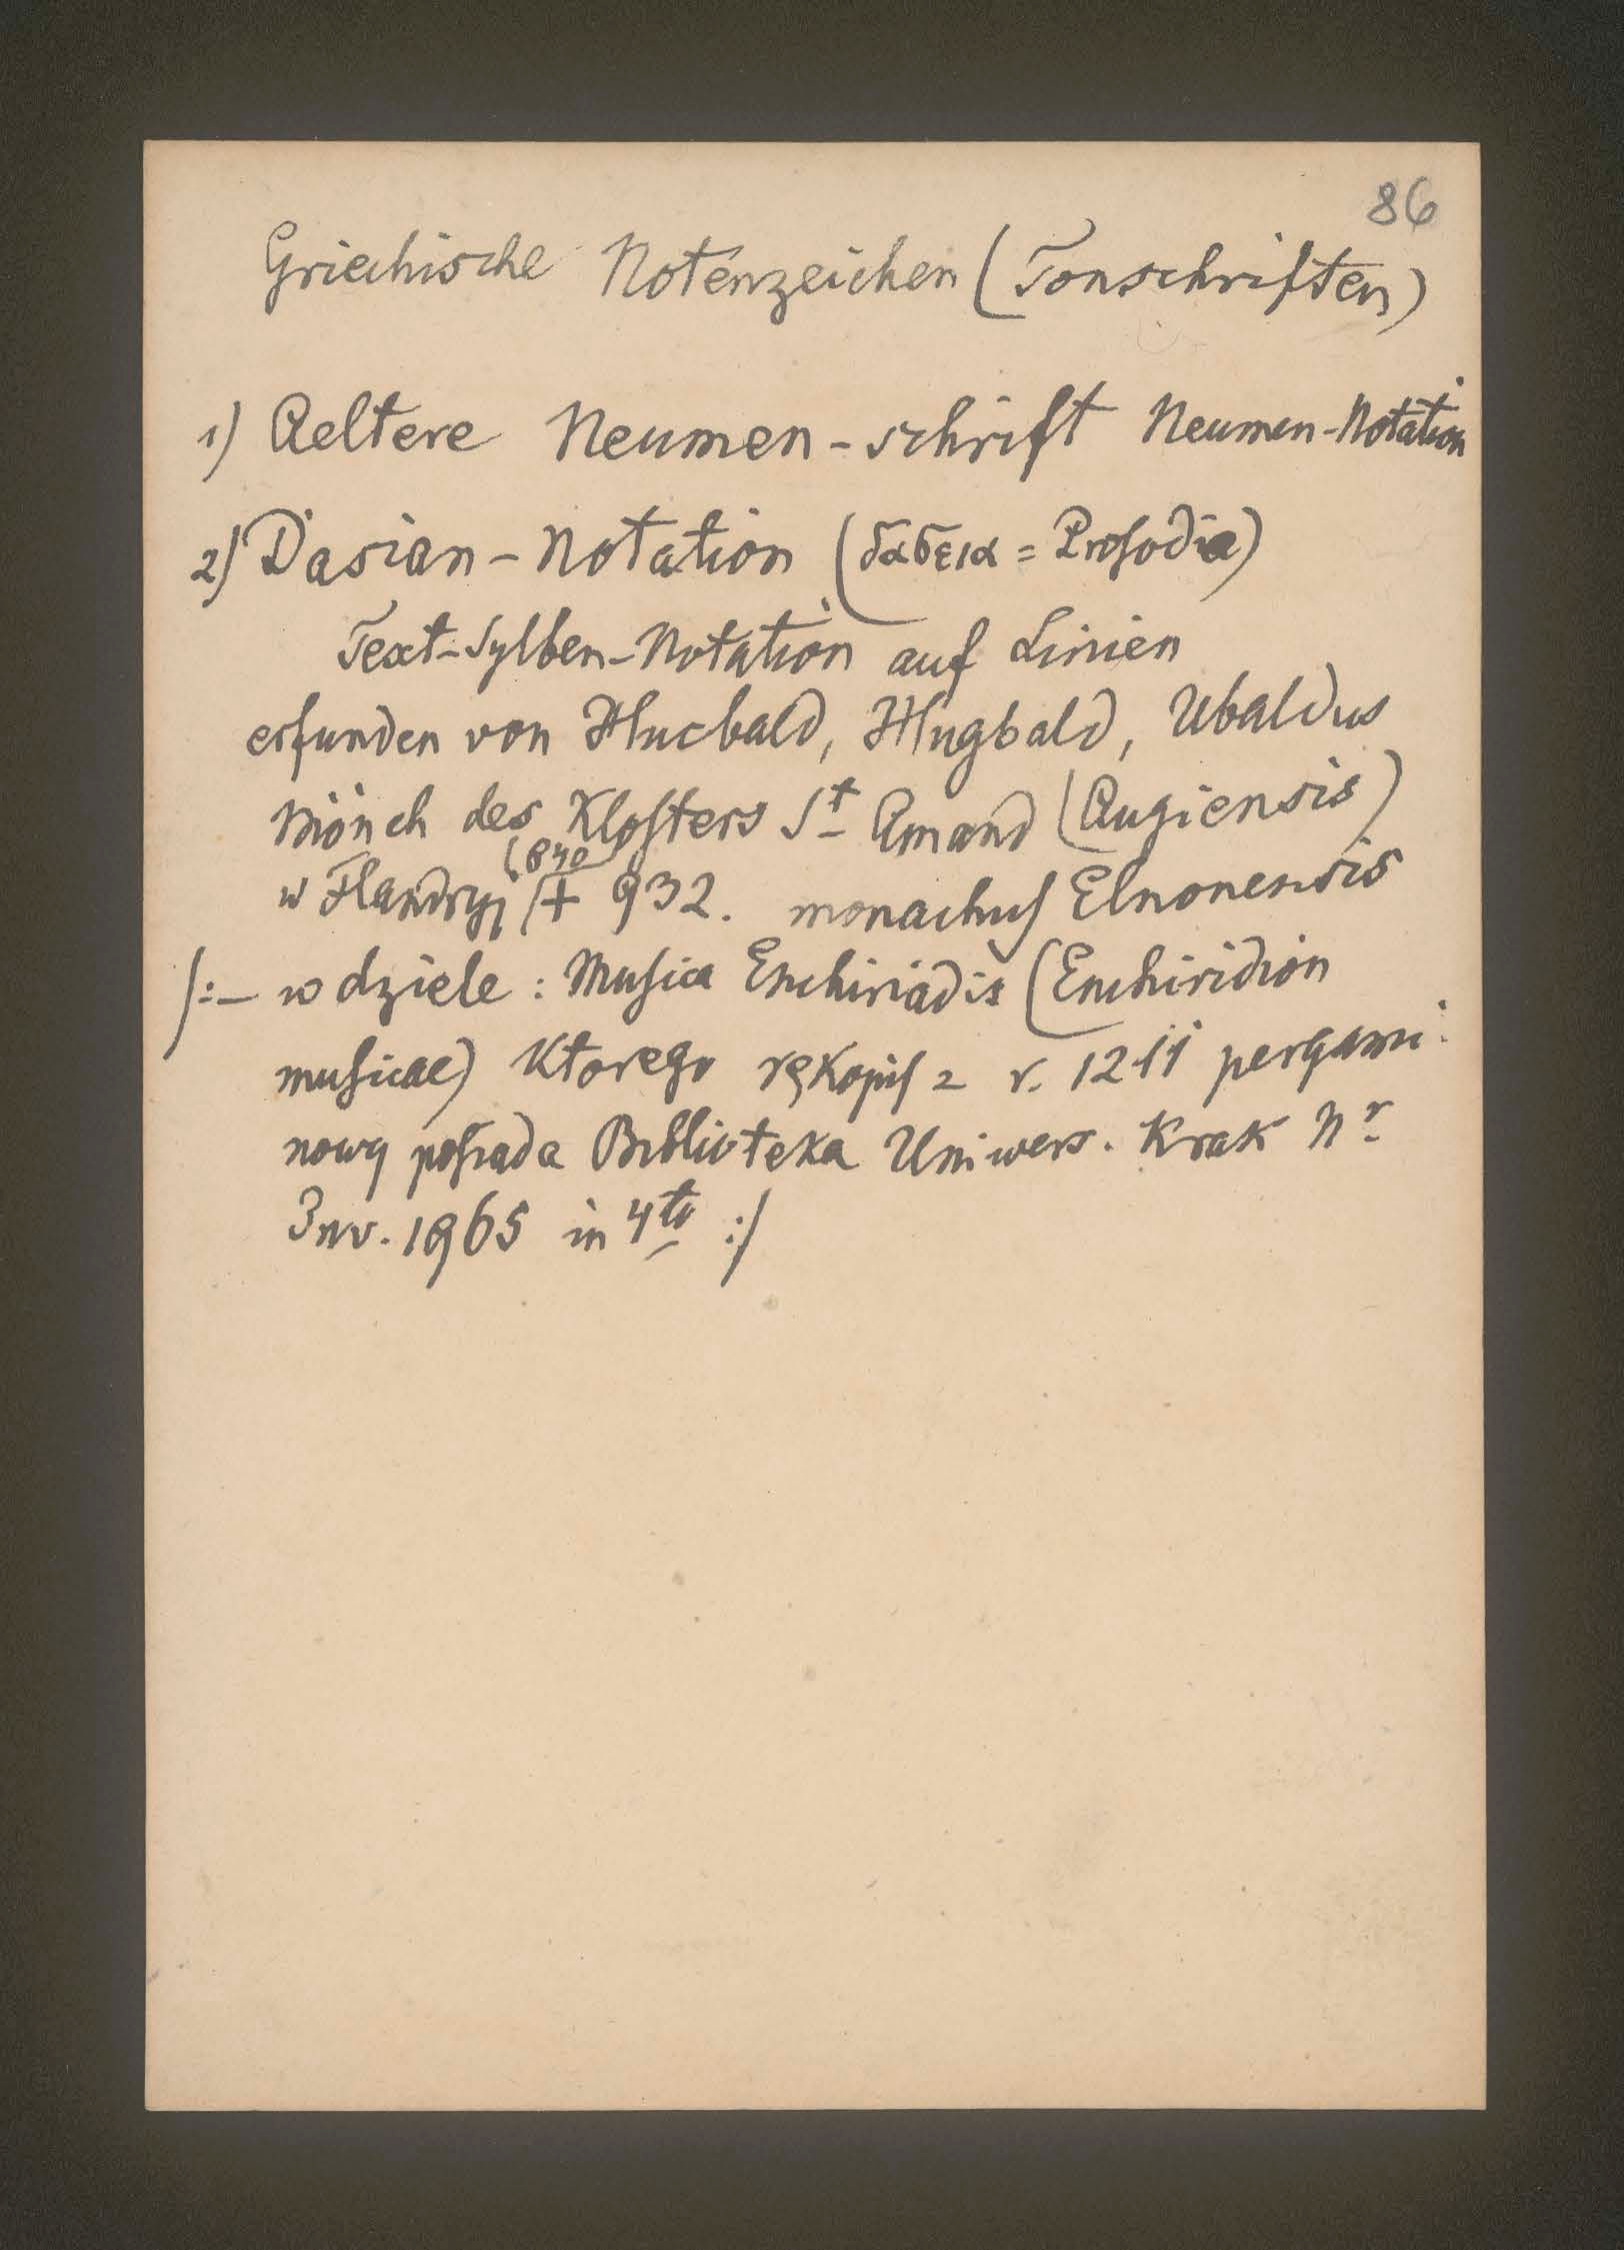 86
Griechische Notenzeichen (Tonschriften)
1) Aeltere Neumen-schrift Neumen-Notation
2) Dasian-Notation (δασεια = Prosodia)
Text-Sylben-Notation auf Linien
erfunden von Hucbald, Hugbald, Ubaldus
Mönch des Klosters St Amand (Augiensis)
(840
w Flandryj + 932. monachus Elnonensis
/:- w dziele: Musica Enchiriadis (Enchiridion
musicae) Ktorego rękopis z r. 1211 pergami:
nowy posiada Biblioteka Uniwers. Krak Nr
Inv. 1965 in 4to :/